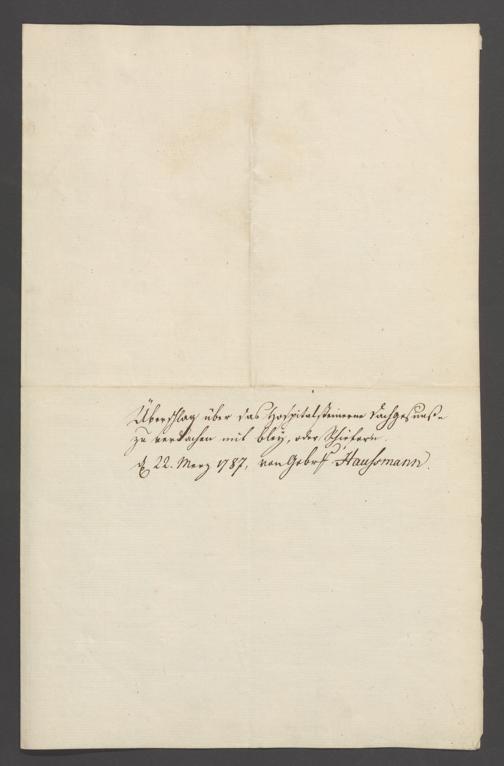 Überschlag über das Hospital steinerne Dachgesimse
zu verdachen mit bley, oder Schiefern.
d 22. Merz 1787, von Gebr Haussmann.